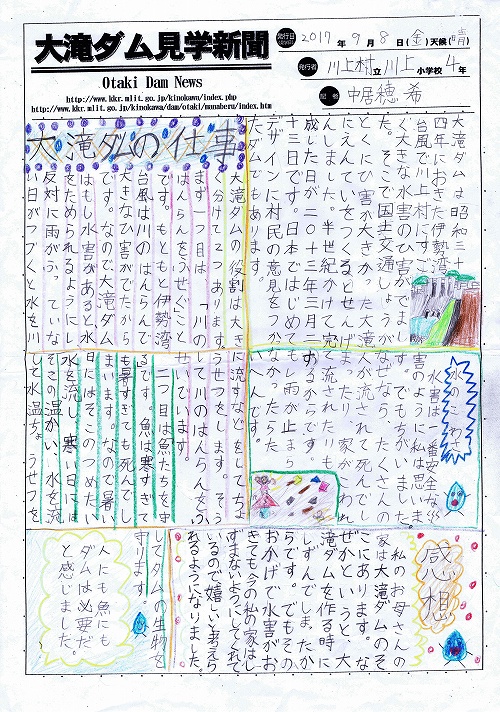 大滝ダム見学新聞
Otaki Dam News
http://www.kkr.mlit.go.jp/kinokawa/index.php
http://www.kkr.mlit.go.jp/kinokawa/dam/otaki/manabu/index.htm
発行日 2017年9月8日(金)天候(晴)
発行者 川上村立川上小学校4年
記者 中居穂希
大滝ダムは昭和三十
四年におきた伊勢湾
台風で川上村にすご
く大きな水害のひ害がでまし
た。そこで国土交通しょうが
とくにひ害が大きかった大滝
にえんていをつくるとせんげ
んしました。半世紀かけて完
成した日が二〇十三年三月二
十三日です。日本ではじめて
デザインに村民の意見をつかっ
たダムでもあります。
水のこわさ
水害は一番安全な災
害のように私は思いま
した。でもちがいました。
なぜなら、たくさんの
人が流されて死んでし
まったり、家がこわれ
て流されたりも
するからです。
もし雨が止まら
なかったらた
いへんです。
大滝ダムの仕事
大滝ダムの役割は大き
く分けて2つあります。
まず一つ目は、「川の
はんらんをふせぐ」こと
です。もともと伊勢湾
台風は川のはんらんで
大きなひ害がでたから
です。なので大滝ダム
はもし水害があると、水
をためられるようにし
反対に雨がふっていな
い日がつづくと水を川
に流すなどをしてちょ
うせつをします。そう
して川のはんらんをふ
せいでいます。
二つ目は魚たちを守
るです。魚は寒すぎて
も暑すぎても死んでし
まいます。なので暑い
日にはそこのつめたい
水を流し、寒い日には
そこの温かい、水を流
して水温ちょうせつを
してダムの生物を
守ります。
感想
私のお母さんの
家は大滝ダムのそ
こにあります。な
ぜかというと、大
滝ダムを作る時に
しずんでしまったか
らです。でもその
おかげで水害がお
きても今の私の家はし
ずまないようにしてくれて
いるので嬉しいと考えら
れるようになりました。
人にも魚にも
ダムは必要だ
と感じました。